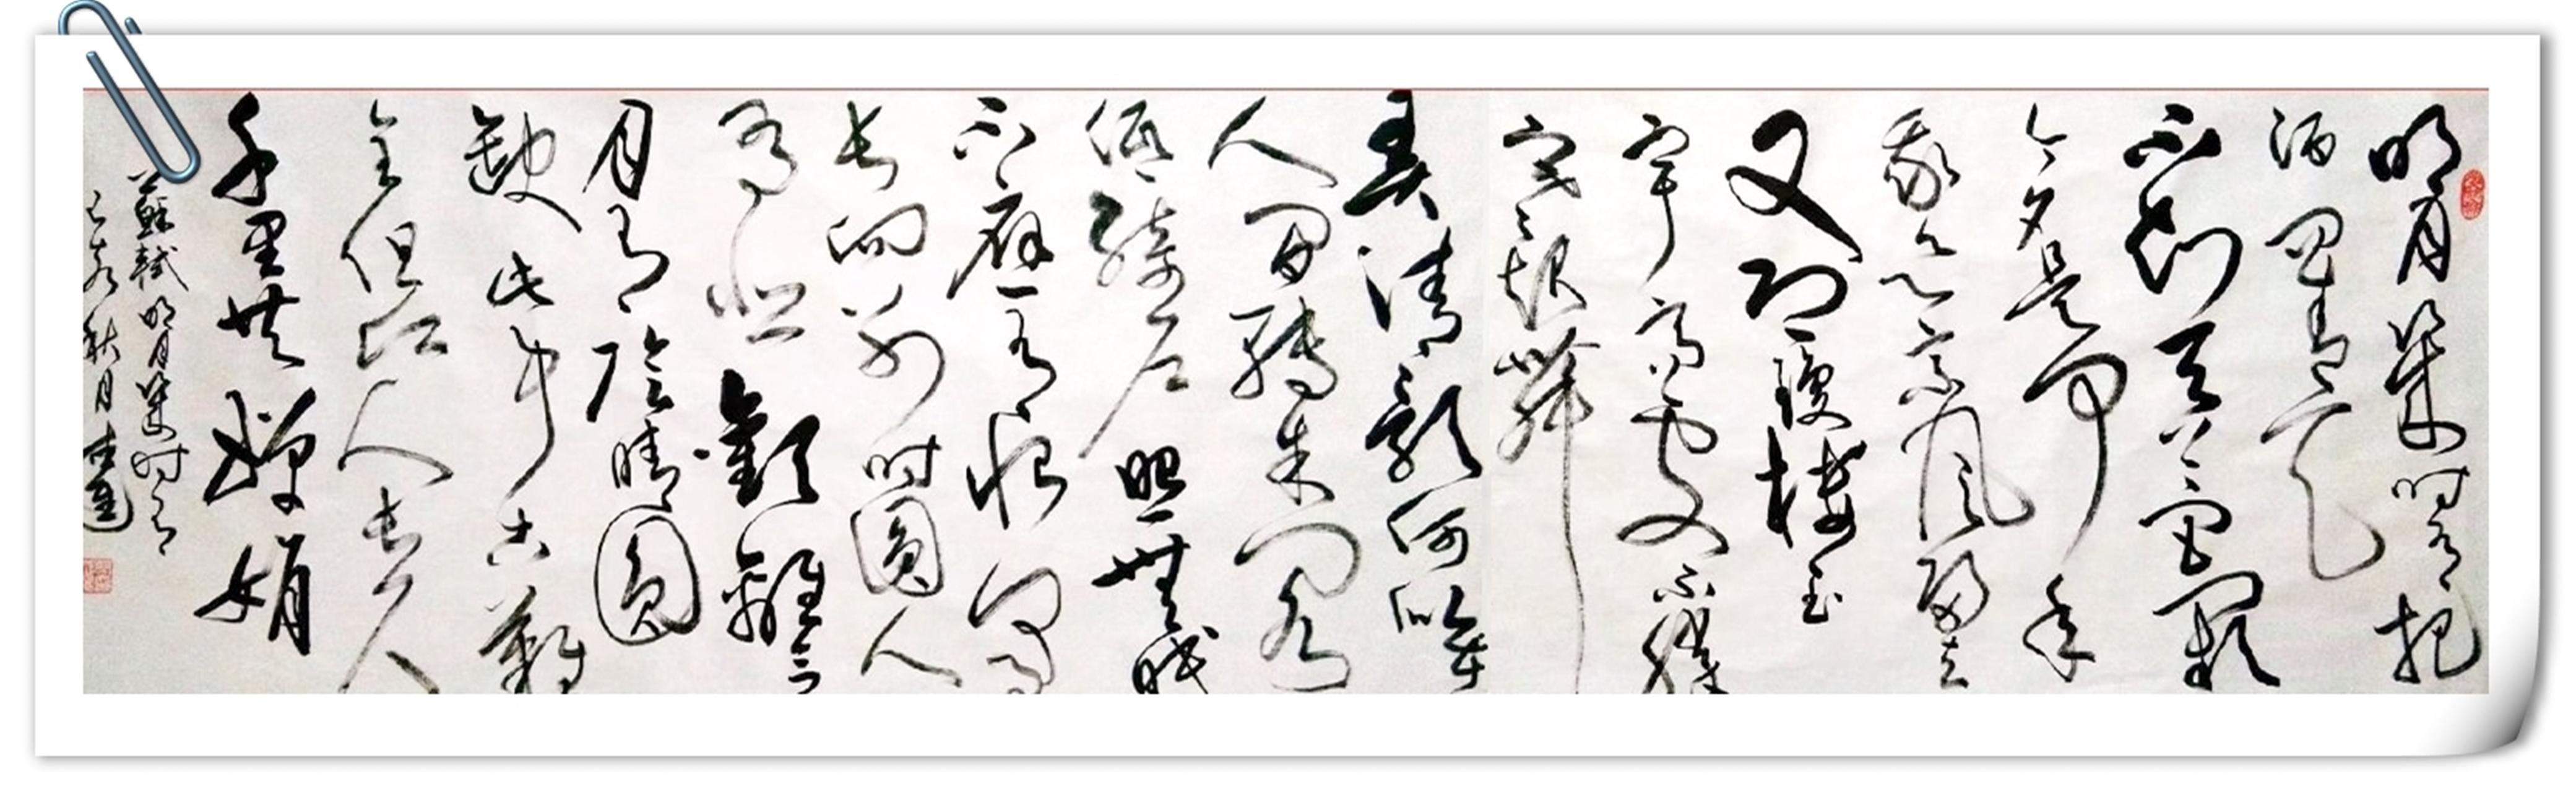 明月幾時有把
酒問青天
不知天上宮闕
今夕是何年
我欲乘風歸去
又恐瓊樓玉
宇高處不勝
寒起舞
弄清影何似在
人間轉朱閣
低綺戶照無眠
不應有恨何事
長向別時圓人
有悲歡離合
月有陰晴圓
缺此事古難
全但願人長久
千里共嬋娟
蘇軾明月幾時有
秋月